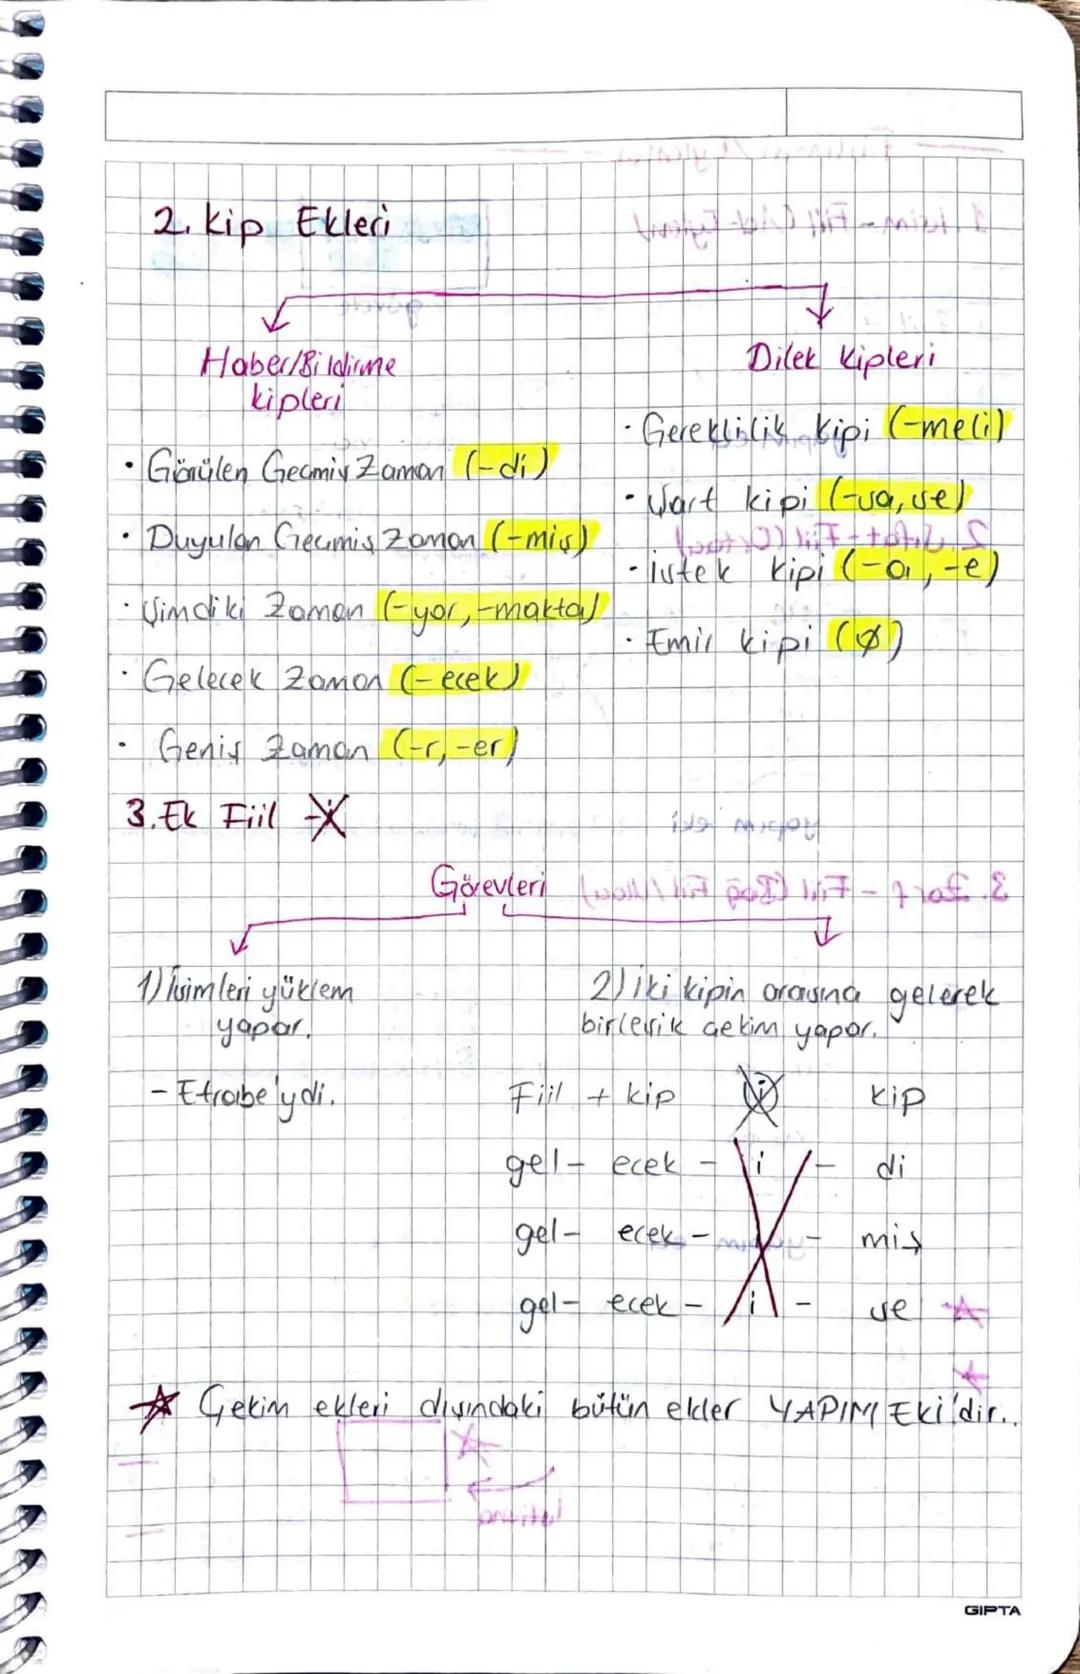 2. Kip Ekleri
Haber/Bildirme
kipleri
• Görülen Geçmiş Zaman (-di)
• Duyulan Geçmiş Zaman (-miş)
• Şimdiki Zaman (-yor, -makta)
• Gelecek Zaman (-ecek)
• Geniş Zaman (-r, -er)
Dilek Kipleri
• Gereklilik kipi (-meli)
• Şart kipi (-sa, se)
• İstek kipi (-a, -e)
• Emir kipi (Ø)
3. Ek Fiil -i
Görevleri
1) İsimleri yüklem
yapar.
- Etrabe'ydi.
2) İki kipin arasına gelerek
birleşik çekim yapar.
Fiil + kip i kip
gel- ecek - i - di
gel- ecek - - miş
gel- ecek - i - se
☆ Çekim ekleri dışındaki bütün ekler YAPIM Eki'dir..
GIPTA